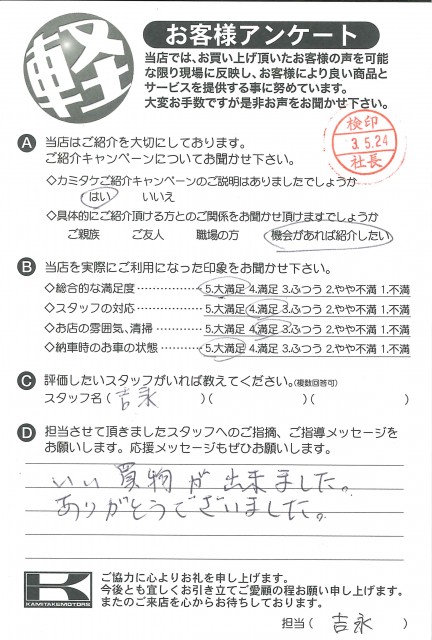 軽
お客様アンケート
当店では、お買い上げ頂いたお客様の声を可能
な限り現場に反映し、お客様により良い商品と
サービスを提供する事に努めています。
大変お手数ですが是非お声をお聞かせ下さい。
検印
3.5.24
社長
A 当店はご紹介を大切にしております。
ご紹介キャンペーンについてお聞かせ下さい。
◇カミタケご紹介キャンペーンのご説明はありましたでしょうか
はい いいえ
◇具体的にご紹介頂ける方とのご関係をお聞かせ頂けますでしょうか
ご親族 ご友人 職場の方 機会があれば紹介したい
B 当店を実際にご利用になった印象をお聞かせ下さい。
◇総合的な満足度 ················ 5.大満足 4.満足 3.ふつう 2.やや不満 1.不満
◇スタッフの対応 ················ 5.大満足 4.満足 3.ふつう 2.やや不満 1.不満
◇お店の雰囲気、清掃 ·········· 5.大満足 4.満足 3.ふつう 2.やや不満 1.不満
◇納車時のお車の状態 ·········· 5.大満足 4.満足 3.ふつう 2.やや不満 1.不満
C 評価したいスタッフがいれば教えてください。(複数回答可)
スタッフ名( 吉永 )( )( )
D 担当させて頂きましたスタッフへのご指摘、ご指導メッセージを
お願いします。応援メッセージもぜひお願いします。
いい買物が出来ました。
ありがとうございました。
K
KAMITAKE MOTORS
ご協力に心よりお礼を申し上げます。
今後とも宜しくお引き立てご愛顧の程お願い申し上げます。
またのご来店を心からお待ちしております。
担当( 吉永 )